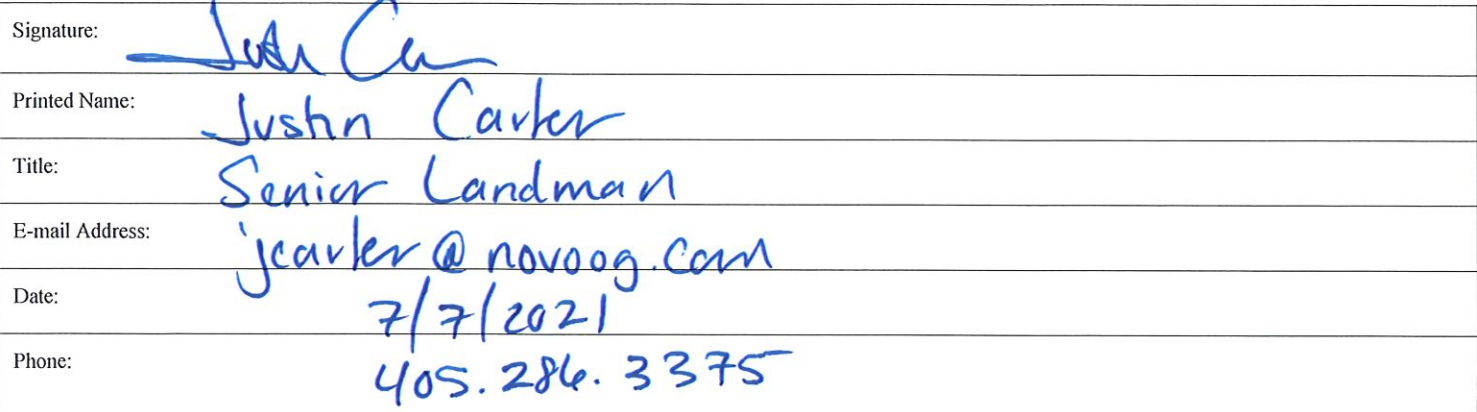 Signature:
Printed Name: Justin Carter
Title: Senior Landman
E-mail Address: jcarter@novoog.com
Date: 7/7/2021
Phone: 405.286.3375